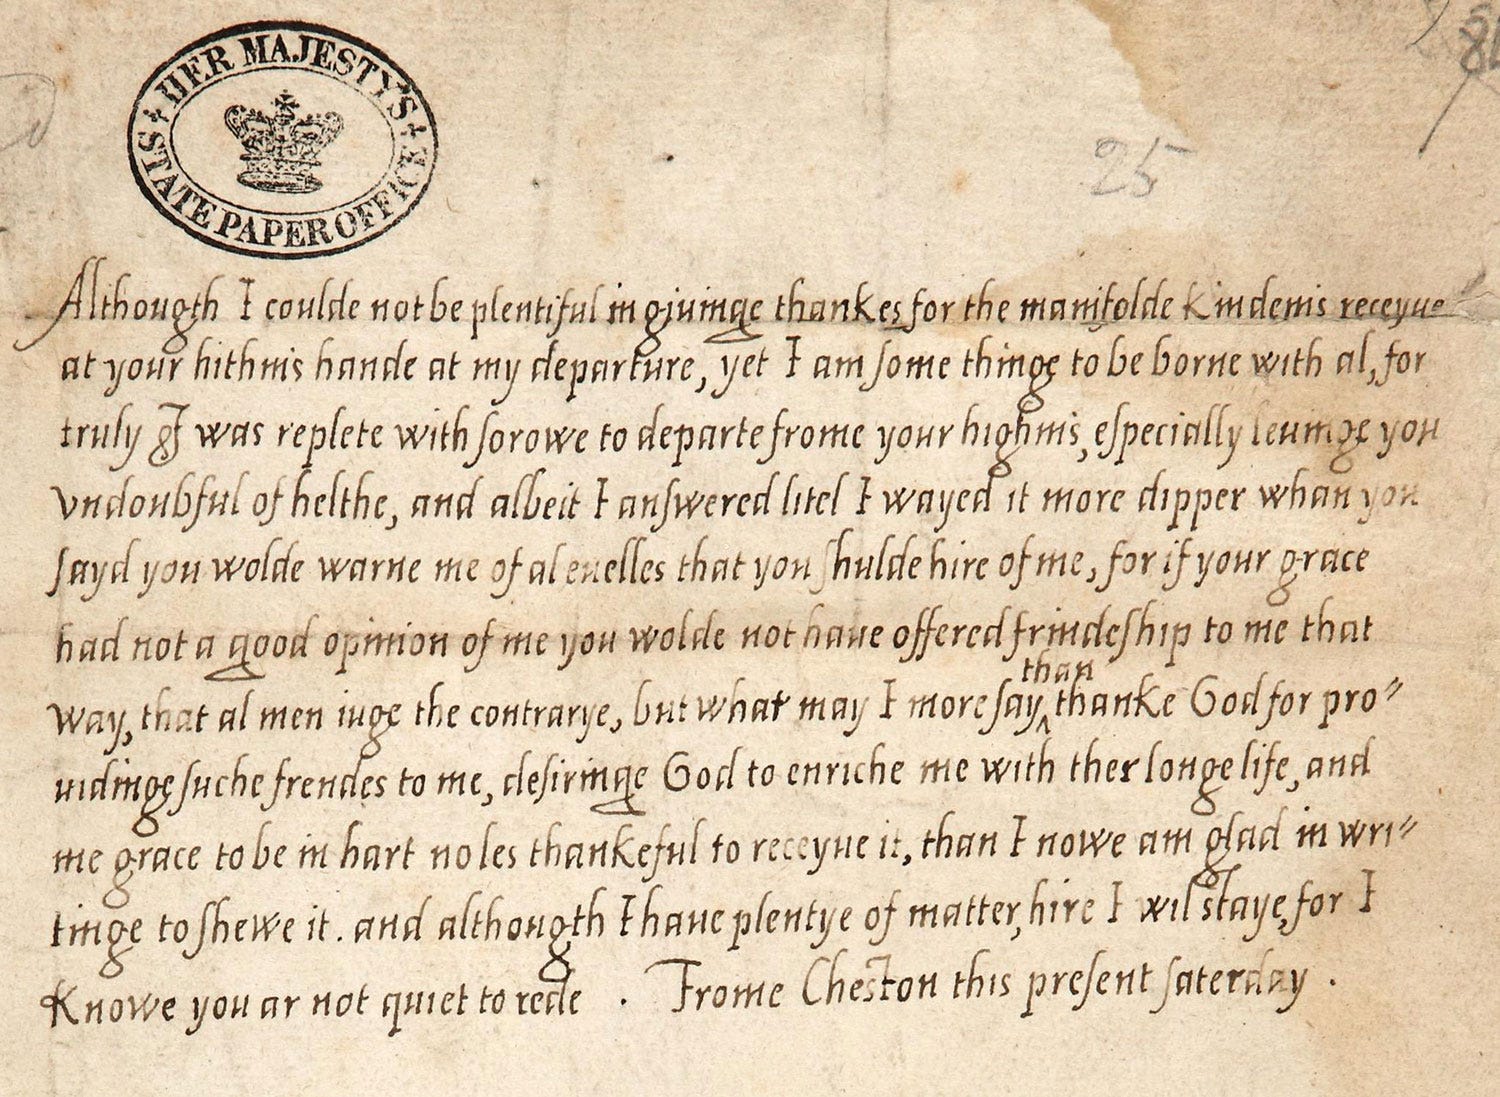 HER MAJESTY'S
STATE PAPER OFFICE
25
Althougth I coulde not be plentiful in giuinge thankes for the manifolde kindenis receyue
at your hithnis hande at my departure, yet I am some thinge to be borne with al, for
truly I was replete with sorowe to departe frome your highnis, especially leuinge you
vndoubful of helthe, and albeit I answered litel I wayed it more dipper whan you
sayd you wolde warne me of al euelles that you shulde hire of me, for if your grace
had not a good opinion of me you wolde not haue offered frindeship to me that
than
way, that al men iuge the contrarye, but what may I more say ^ thanke God for pro"
uidinge suche frendes to me, desiringe God to enriche me with ther longe life, and
me grace to be in hart no les thankeful to receyue it, than I nowe am glad in wri"
tinge to shewe it. and althougth I haue plentye of matter, hire I wil staye, for I
Knowe you ar not quiet to rede . Frome Cheston this present saterday .